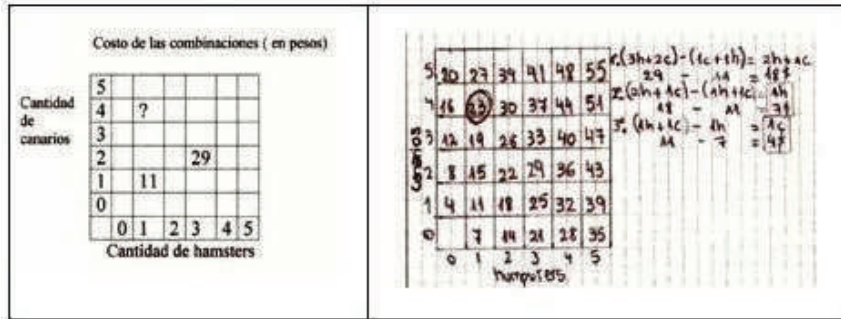 Costo de las combinaciones ( en pesos)
Cantidad
de
canarios
5
4 ?
3
2 29
1 11
0
0 1 2 3 4 5
Cantidad de hamsters
5 20 27 34 41 48 55
4 16 23 30 37 44 51
3 12 19 26 33 40 47
2 8 15 22 29 36 43
1 4 11 18 25 32 39
0 7 14 21 28 35
0 1 2 3 4 5
canarios
1. (3h+2c)-(1c+1h)= 2h+1c
29 - 11 = 18$
2. (2h+1c)-(1h+1c)= 1h
18 - 11 = 7$
3. (1h+1c)- 1h = 1c
11 - 7 = 4$